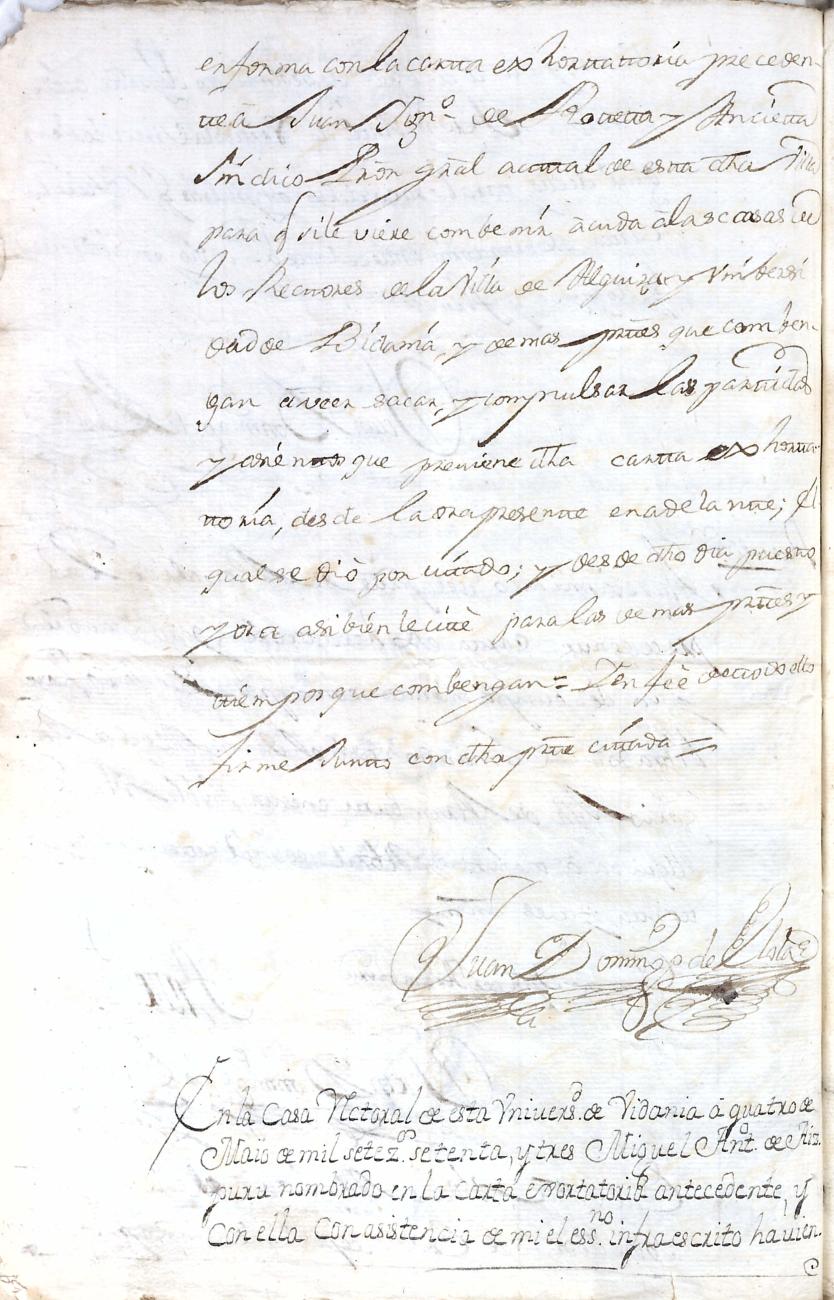 en forma con la cartta exhorttattoria preceden-
tte â Juan Ign.º de Olotetta y Ancietta
Síndico Prōn grāl acttual de estta dha Villa
para q si le viere combenir acuda a las casas de
los Recttores de la Villa de Alguiza, y Vniversi
dad de Bidania, y demas prttes que comben-
gan â veer sacar, y compulsar las parttidas
y que previene dha cartta exhortta-
ttoria, desde la ora presentte en adelantte; el
qual se diò por cittado; y desde dho dia puestto
y ora asi bien le cittè para las demas prttes y
ttiempos que combengan = En feè de ttodo ello
firme Juntto con dha prtte cittada =
Juan Domingo de
En la Casa Rectoral de esta Vnivers.d de Vidania â quatro de
Maio de mil setez.os setenta, y tres Miguel Ant.º de Aiz
puru nombrado en la Carta exortatoria antecedente, y
Con ella Con asistencia de mi el ess.no infraescrito havien-